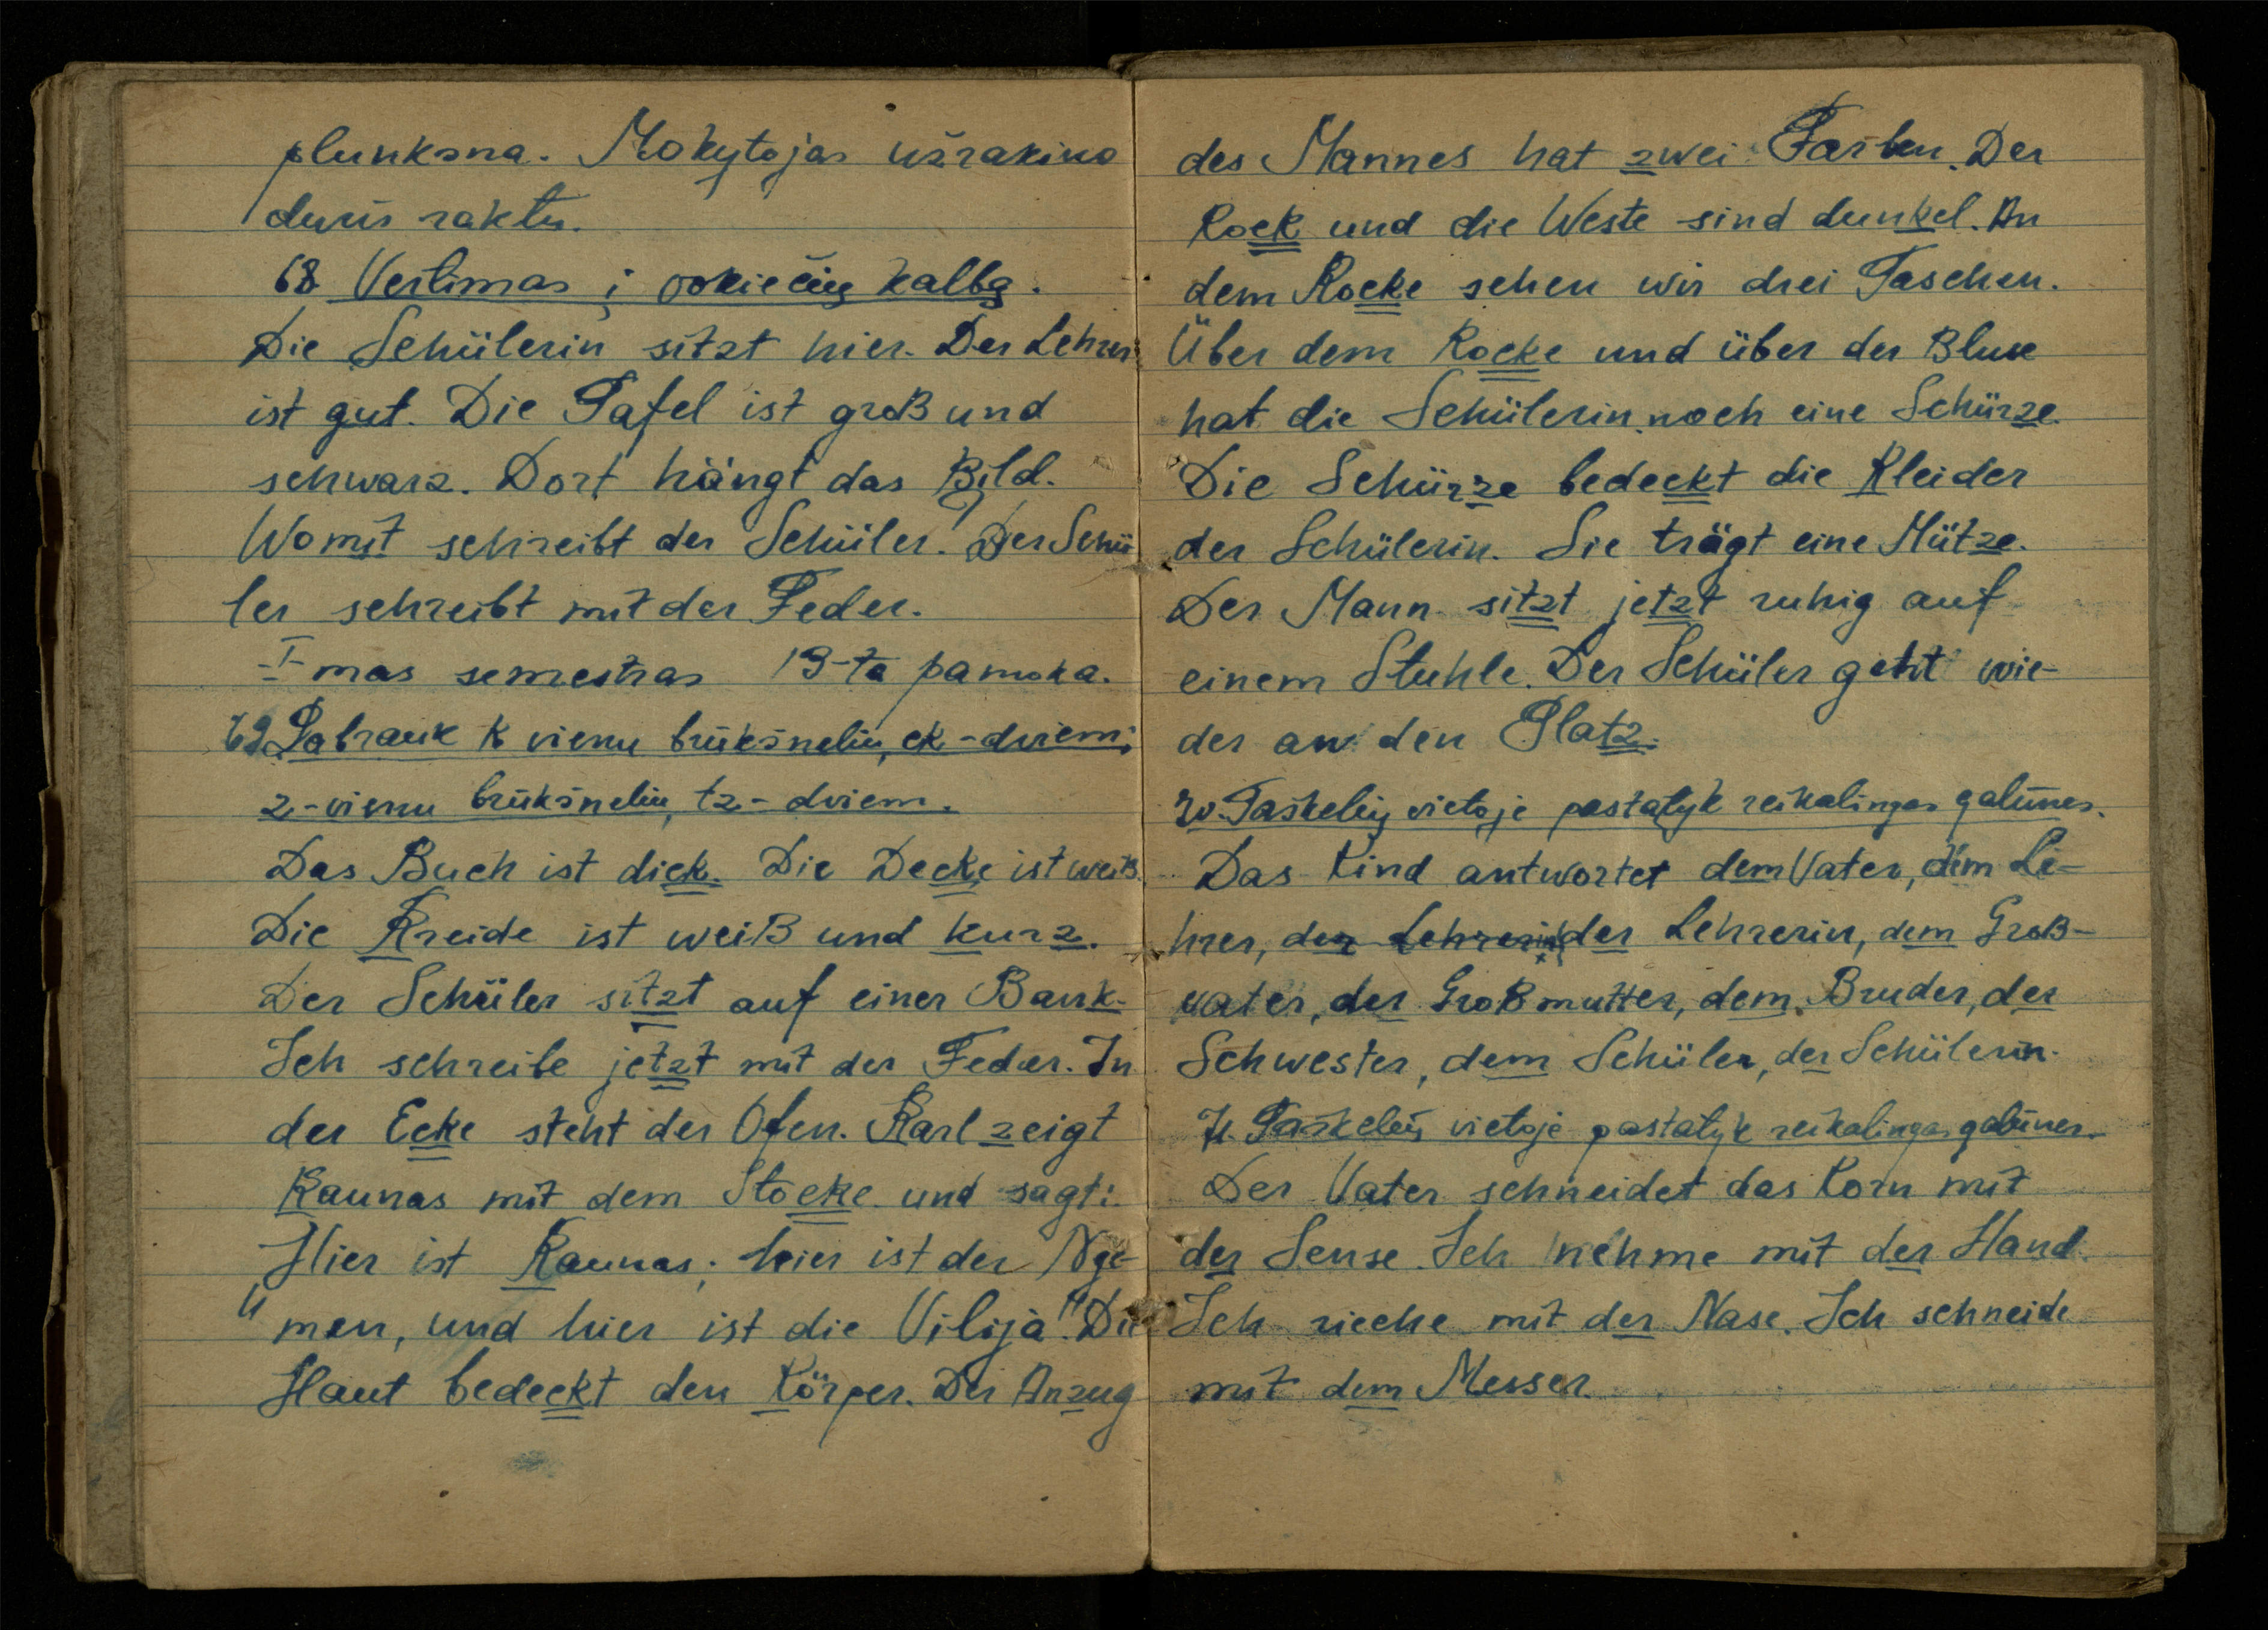 plunksna. Mokytojas užrakino
duris raktu.
68. Vertimas į vokiečių kalbą.
Die Schülerin sitzt hier. Der Lehrer
ist gut. Die Tafel ist groß und
schwarz. Dort hängt das Bild.
Womit schreibt der Schüler? Der Schü
ler schreibt mit der Feder.
I-mas semestras 19-ta pamoka.
69. Pabrauk k vienu brūkšneliu, ck - dviem;
z - vienu brūkšneliu, tz - dviem.
Das Buch ist dick. Die Decke ist weiß.
Die Kreide ist weiß und kurz.
Der Schüler sitzt auf einer Bank.
Ich schreibe jetzt mit der Feder. In
der Ecke steht der Ofen. Karl zeigt
Kaunas mit dem Stocke und sagt:
Hier ist Kaunas; hier ist der Nje-
"men, und hier ist die Vilija". Die
Haut bedeckt den Körper. Der Anzug
des Mannes hat zwei Farben. Der
Rock und die Weste sind dunkel. An
dem Rocke sehen wir drei Taschen.
Über dem Rocke und über der Bluse
hat die Schülerin noch eine Schürze.
Die Schürze bedeckt die Kleider
der Schülerin. Sie trägt eine Mütze.
Der Mann sitzt jetzt ruhig auf
einem Stuhle. Der Schüler geht wie-
der an den Platz.
70. Taškelių vietoje pastatyk reikalingas galūnes.
Das Kind antwortet dem Vater, dem Le-
hrer, der Lehrerin der Lehrerin, dem Groß-
vater, der Großmutter, dem Bruder, der
Schwester, dem Schüler, der Schülerin.
71. Taškelių vietoje pastatyk reikalingas galūnes.
Der Vater schneidet das Korn mit
der Sense. Ich nehme mit der Hand.
Ich rieche mit der Nase. Ich schneide
mit dem Messer.